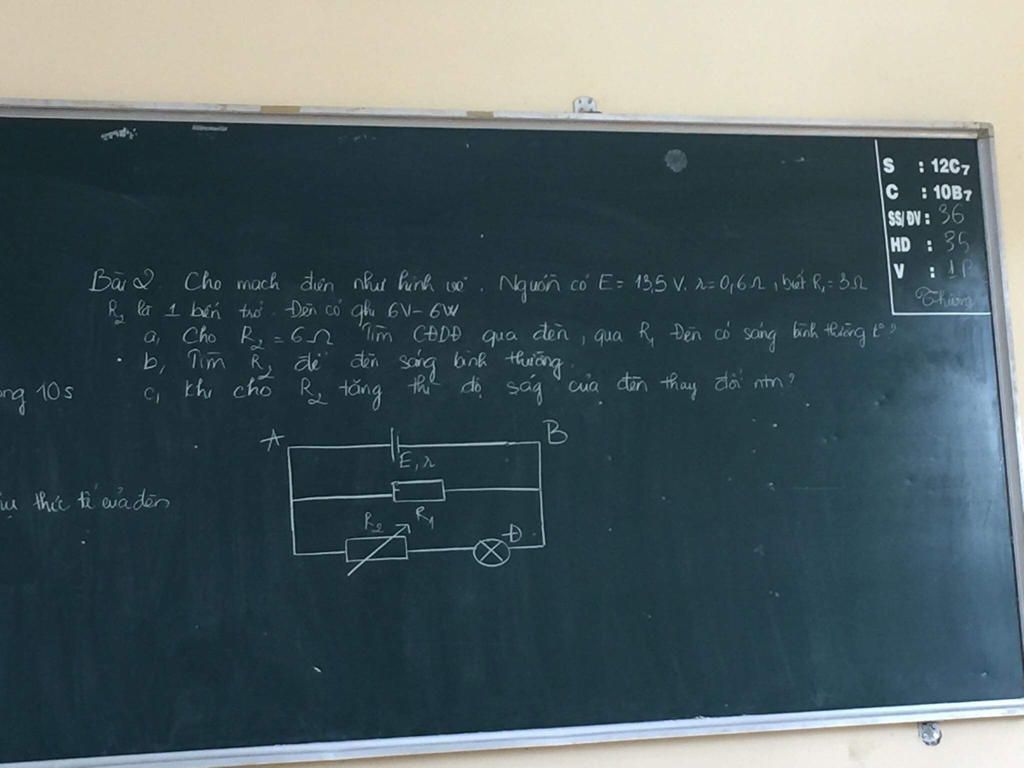 Bài 2. Cho mạch điện như hình vẽ. Nguồn có E = 13,5 V. r = 0,6 Ω, biết R1 = 3 Ω
R2 là 1 biến trở. Đèn có ghi 6V - 6W
a, Cho R2 = 6 Ω Tìm CĐDĐ qua đèn, qua R1 Đèn có sáng bình thường k°?
b, Tìm R2 để đèn sáng bình thường.
c, Khi cho R2 tăng thì độ sáng của đèn thay đổi ntn?
ong 10s
thực tế của đèn
A
B
E, r
R1
R2
Đ
S : 12C7
C : 10B7
SS/ĐV : 36
HD : 35
V : 1P